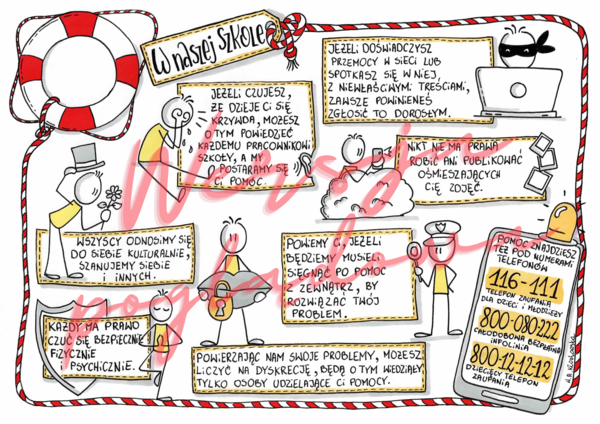 W NASZEJ SZKOLE
JEŻELI CZUJESZ,
ŻE DZIEJE CI SIĘ
KRZYWDA, MOŻESZ
O TYM POWIEDZIEĆ
KAŻDEMU PRACOWNIKOWI
SZKOŁY, A MY
POSTARAMY SIĘ
CI POMÓC.
JEŻELI DOŚWIADCZYSZ
PRZEMOCY W SIECI LUB
SPOTKASZ SIĘ W NIEJ,
Z NIEWŁAŚCIWYMI TREŚCIAMI,
ZAWSZE POWINIENEŚ
ZGŁOSIĆ TO DOROSŁYM.
NIKT NIE MA PRAWA
ROBIĆ ANI PUBLIKOWAĆ
OŚMIESZAJĄCYCH
CIĘ ZDJĘĆ.
WSZYSCY ODNOSIMY SIĘ
DO SIEBIE KULTURALNIE,
SZANUJEMY SIEBIE
I INNYCH.
POWIEMY CI, JEŻELI
BĘDZIEMY MUSIELI
SIĘGNĄĆ PO POMOC
Z ZEWNĄTRZ, BY
ROZWIĄZAĆ TWÓJ
PROBLEM.
KAŻDY MA PRAWO
CZUĆ SIĘ BEZPIECZNIE
FIZYCZNIE
I PSYCHICZNIE.
POWIERZAJĄC NAM SWOJE PROBLEMY, MOŻESZ
LICZYĆ NA DYSKRECJĘ, BĘDĄ O TYM WIEDZIAŁY
TYLKO OSOBY UDZIELAJĄCE CI POMOCY.
POMOC ZNAJDZIESZ
TEŻ POD NUMERAMI
TELEFONÓW
116-111
TELEFON ZAUFANIA
DLA DZIECI I MŁODZIEŻY
800-080-222
CAŁODOBOWA BEZPŁATNA
INFOLINIA
800-12-12-12
DZIECIĘCY TELEFON
ZAUFANIA
Wersja
poglądowa